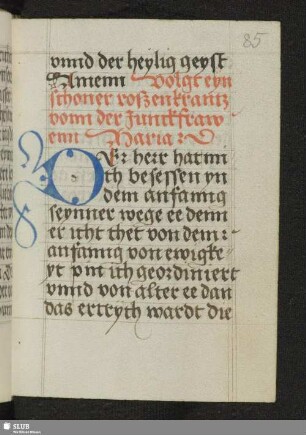 85
vnnd der heylig geyst
Amenn Volgt eyn
schoner roszenkrantz
vonn der Junckfraw
enn Maria :
Der herr hat mi
ch besessen yn
dem anfanng
seynner wege ee denn
er icht thet von dem :
anfanng von ewigke
yt pin ich geordiniert
vnnd von alter ee dan
das ertrych wardt die
SLUB